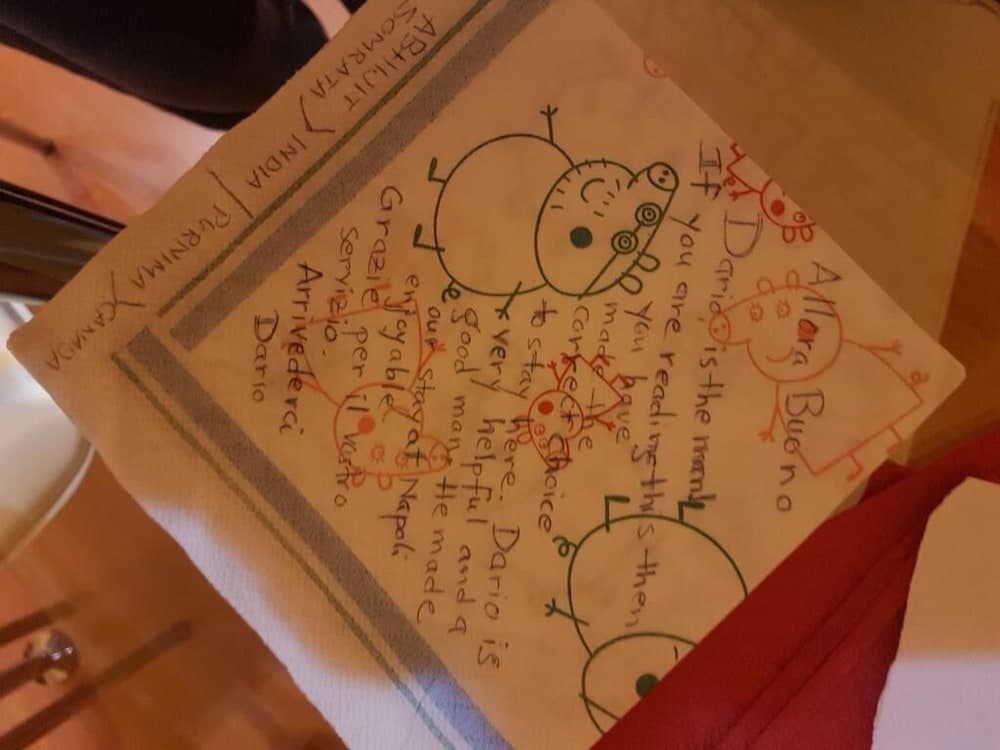 Allora Buono
Dario is the man!
If you are reading this then
you have
made the
correct choice
to stay here. Dario is
very helpful and a
good man. He made
our stay at Napoli
enjoyable.
Grazie per il vostro
servizio.
Arrivederci
Dario
ABHIJIT
SOMRATA
INDIA
PURNIMA
CANADA